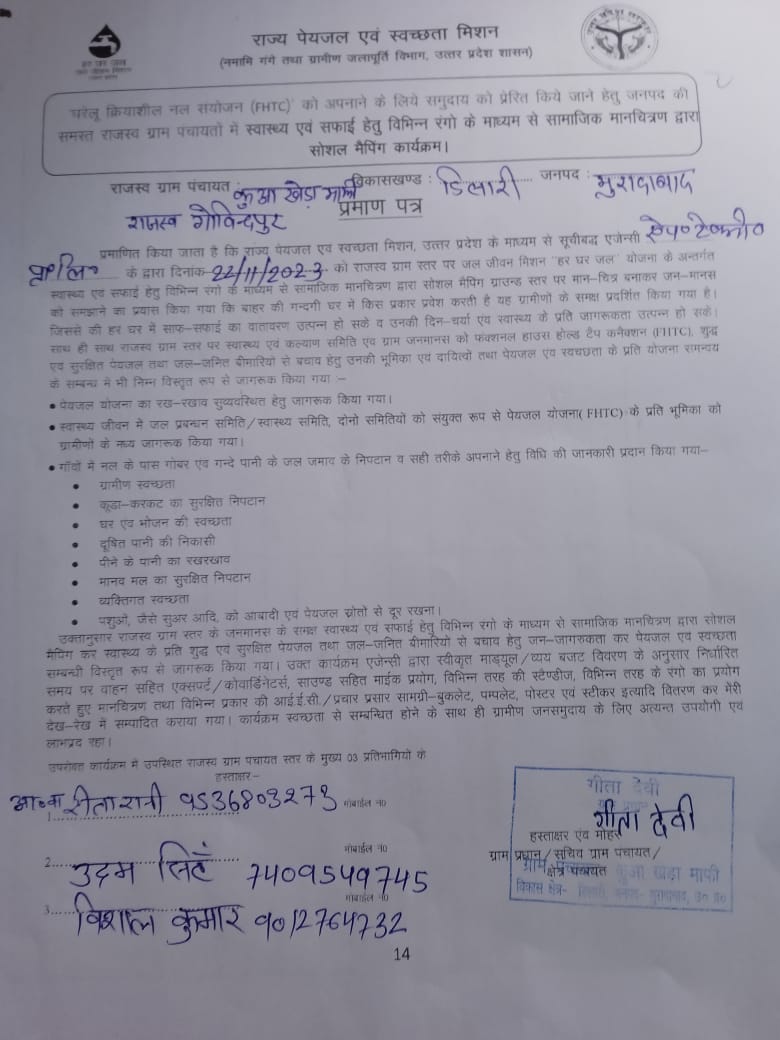 हर घर जल
जल जीवन मिशन
राज्य पेयजल एवं स्वच्छता मिशन
(नमामि गंगे तथा ग्रामीण जलापूर्ति विभाग, उत्तर प्रदेश शासन)
'घरेलू क्रियाशील नल संयोजन (FHTC)' को अपनाने के लिये समुदाय को प्रेरित किये जाने हेतु जनपद की
समस्त राजस्व ग्राम पंचायतों में स्वास्थ्य एवं सफाई हेतु विभिन्न रंगो के माध्यम से सामाजिक मानचित्रण द्वारा
सोशल मैपिंग कार्यक्रम।
राजस्व ग्राम पंचायत : कुआ खेड़ा माफी विकासखण्ड : डिलारी जनपद : मुरादाबाद
राजस्व गोविन्दपुर
प्रमाण पत्र
प्रमाणित किया जाता है कि राज्य पेयजल एवं स्वच्छता मिशन, उत्तर प्रदेश के माध्यम से सूचीबद्ध एजेन्सी
प्रा० लि० के द्वारा दिनांक 22/11/2023 को राजस्व ग्राम स्तर पर जल जीवन मिशन "हर घर जल" योजना के अन्तर्गत
स्वास्थ्य एवं सफाई हेतु विभिन्न रंगो के माध्यम से सामाजिक मानचित्रण द्वारा सोशल मैपिंग ग्राउन्ड स्तर पर मान-चित्र बनाकर जन-मानस
को समझाने का प्रयास किया गया कि बाहर की गन्दगी घर में किस प्रकार प्रवेश करती है यह ग्रामीणों के समक्ष प्रदर्शित किया गया है।
जिससे की हर घर में साफ-सफाई का वातावरण उत्पन्न हो सके व उनकी दिन-चर्या एवं स्वास्थ्य के प्रति जागरूकता उत्पन्न हो सके।
साथ ही साथ राजस्व ग्राम स्तर पर स्वास्थ्य एवं कल्याण समिति एवं ग्राम जनमानस को फंक्शनल हाउस होल्ड टैप कनैक्शन (FHTC), शुद्ध
एवं सुरक्षित पेयजल तथा जल-जनित बीमारियों से बचाव हेतु उनकी भूमिका एवं दायित्वों तथा पेयजल एवं स्वच्छता के प्रति योजना समन्वय
के सम्बन्ध में भी निम्न विस्तृत रूप से जागरूक किया गया :-
• पेयजल योजना का रख-रखाव सुव्यवस्थित हेतु जागरूक किया गया।
• स्वास्थ्य जीवन में जल प्रबन्धन समिति/स्वास्थ्य समिति, दोनो समितियों को संयुक्त रूप से पेयजल योजना( FHTC) के प्रति भूमिका को
ग्रामीणों के मध्य जागरूक किया गया।
• गाँवों में नल के पास गोबर एवं गन्दे पानी के जल जमाव के निपटान व सही तरीके अपनाने हेतु विधि की जानकारी प्रदान किया गया-
• ग्रामीण स्वच्छता
• कूडा-करकट का सुरक्षित निपटान
• घर एवं भोजन की स्वच्छता
• दूषित पानी की निकासी
• पीने के पानी का रखरखाव
• मानव मल का सुरक्षित निपटान
• व्यक्तिगत स्वच्छता
• पशुओं, जैसे सुअर आदि, को आबादी एवं पेयजल स्रोतो से दूर रखना।
उक्तानुसार राजस्व ग्राम स्तर के जनमानस के समक्ष स्वास्थ्य एवं सफाई हेतु विभिन्न रंगो के माध्यम से सामाजिक मानचित्रण द्वारा सोशल
मैपिंग कर स्वास्थ्य के प्रति शुद्ध एवं सुरक्षित पेयजल तथा जल-जनित बीमारियों से बचाव हेतु जन-जागरुकता कर पेयजल एवं स्वच्छता
सम्बन्धी विस्तृत रूप से जागरूक किया गया। उक्त कार्यक्रम एजेन्सी द्वारा स्वीकृत माड्यूल/व्यय बजट विवरण के अनुसार निर्धारित
समय पर वाहन सहित एक्सपर्ट/कोवार्डिनेटर्स, साउण्ड सहित माईक प्रयोग, विभिन्न तरह की स्टैण्डीज, विभिन्न तरह के रंगो का प्रयोग
करते हुए मानचित्रण तथा विभिन्न प्रकार की आई.ई.सी./प्रचार प्रसार सामग्री-बुकलेट, पम्पलेट, पोस्टर एवं स्टीकर इत्यादि वितरण कर मेरी
देख-रेख में सम्पादित कराया गया। कार्यक्रम स्वच्छता से सम्बन्धित होने के साथ ही ग्रामीण जनसमुदाय के लिए अत्यन्त उपयोगी एवं
लाभप्रद रहा।
उपरोक्त कार्यक्रम में उपस्थित राजस्व ग्राम पंचायत स्तर के मुख्य 03 प्रतिभागियों के
हस्ताक्षर-
1. रीता रानी 9536803273 मोबाईल न०
2. उदम सिहं 7409549745 मोबाईल न०
3. विशाल कुमार 9012764732 मोबाईल न०
गीता देवी
गीता देवी
हस्ताक्षर एंव मोहर
ग्राम प्रधान/सचिव ग्राम पंचायत/
क्षेत्र पंचायत
कुआ खेडा माफी
विकास क्षेत्र- डिलारी, जनपद- मुरादाबाद, उ० प्र०
14